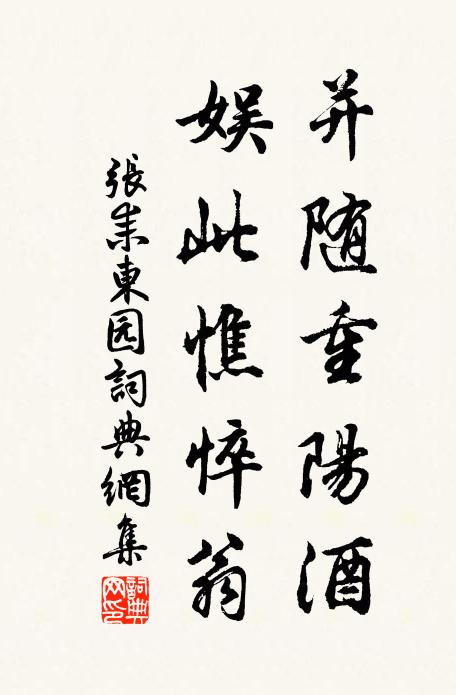 并随重陽酒
娱此憔悴翁
張耒東园詞典網集
詞典網印